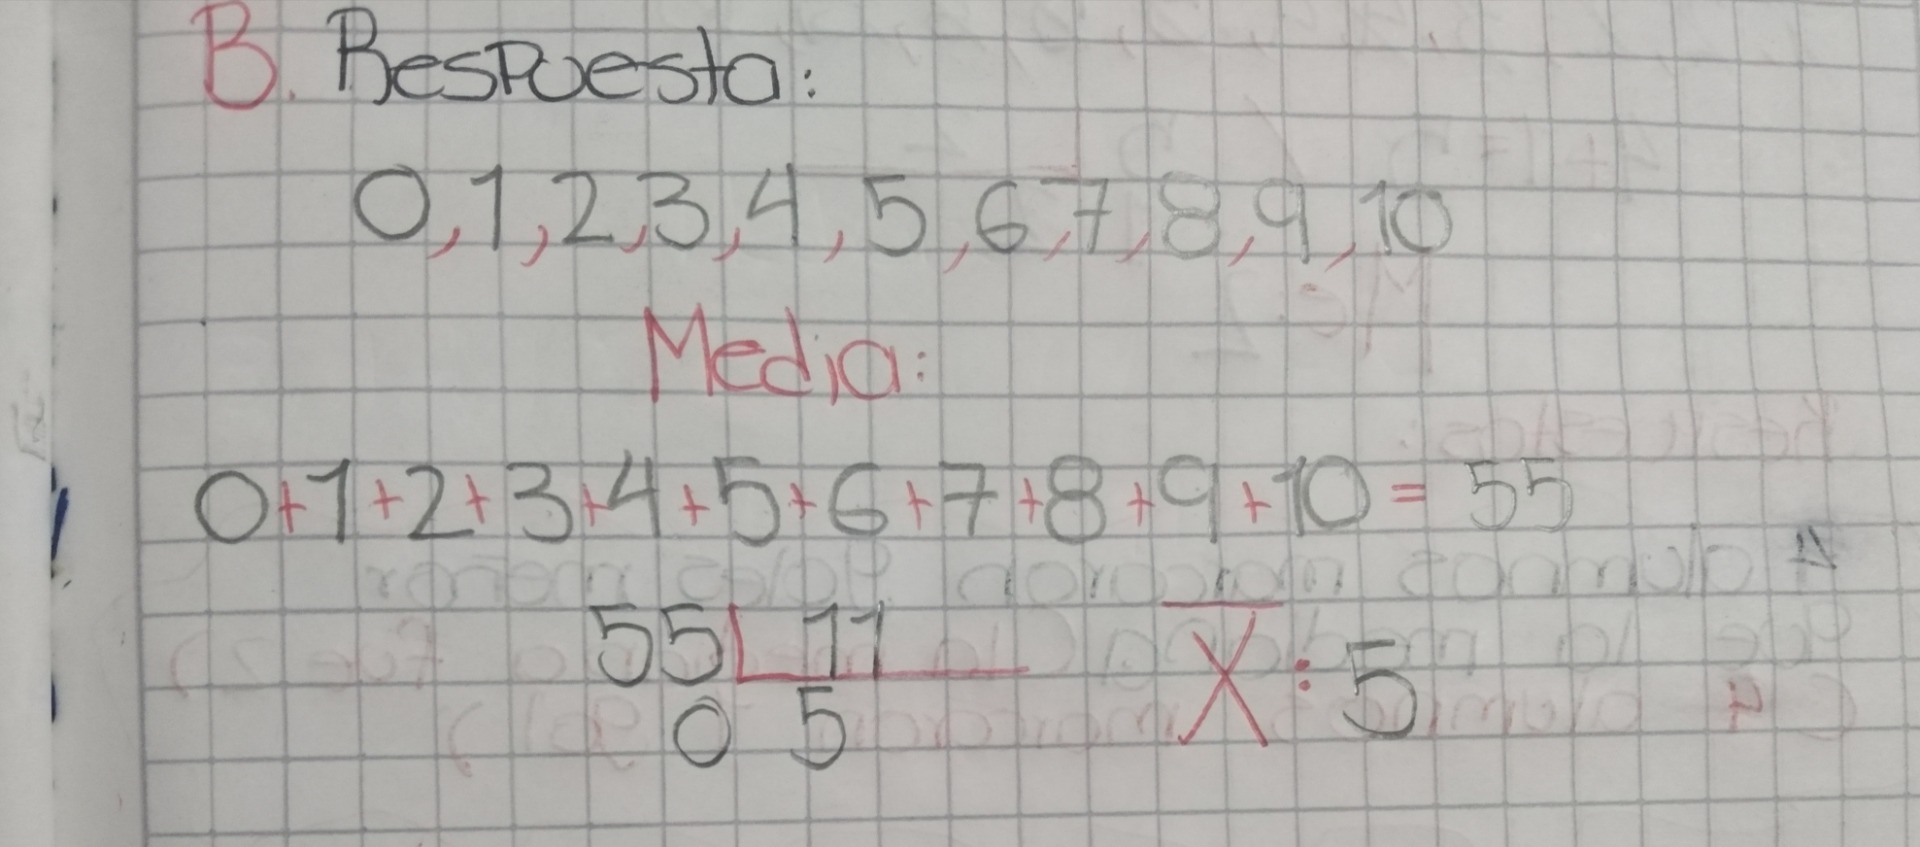 B. Respuesta:
0,1,2,3,4,5,6,7,8,9,10
Media:
0+1+2+3+4+5+6+7+8+9+10=55
55 11 X̅: 5
0 5